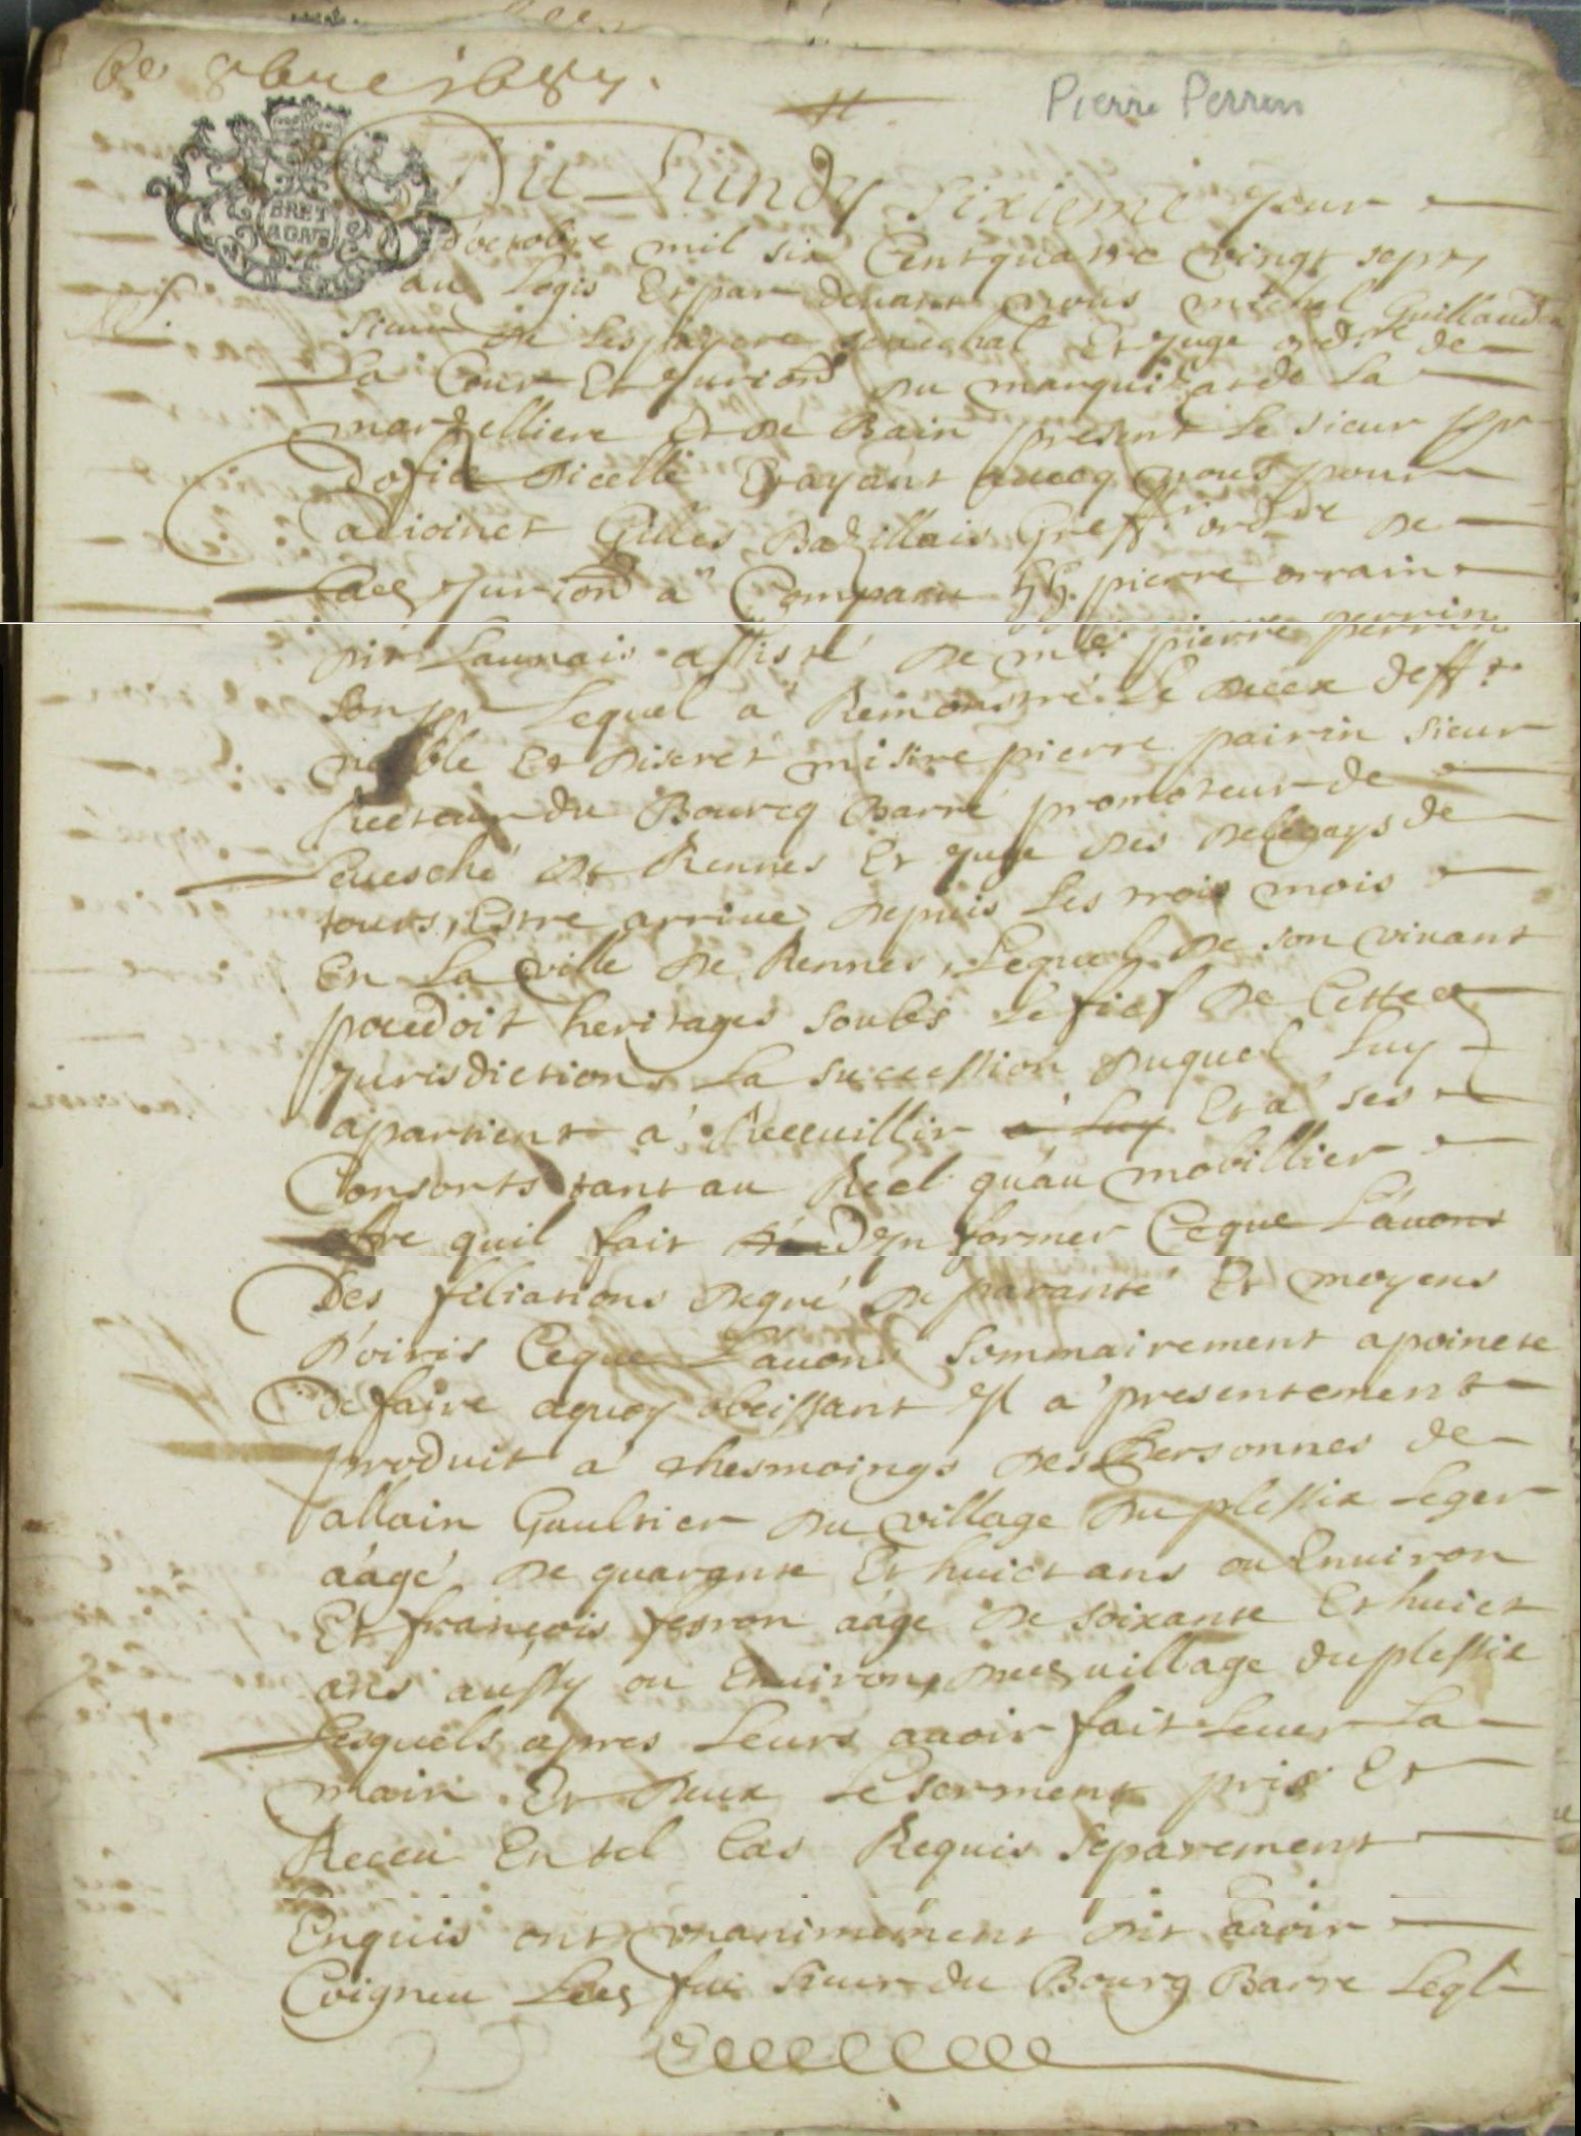 6e 8bre 1687.
Pierre Perrin
BRET
AGNE
Du Lundy sixieme jour
d'octobre mil six Cent quattre vingt sept,
au Logis Et par devant nous michel Guillaud
sieur de Lespagere senechal Et juge ord.re de
La Cour Et Jurion du marquizat de La
marzelliere Et de Bain present Le sieur pr
dofice dicelle Et ayant avecq nous pour
adioinct Gilles Bazillais Greff. ord.re de
Lad Jurion a Comparu hh. pierre orrain
dit Launais assisté de m.e pierre perrin
son pr Lequel a Remonstré Le decex deff.t
noble Et discret misire pierre pairin sieur
Recteur du Bourcq Barré promoteur de
Levesché de Rennes Et juge des delegays de
tours, Estre arrive depuis Les trois mois
En La ville de Rennes, Lequel de son vivant
poccedoit heritages soubs Le fief de Cette
Jurisdiction La succession duquel Luy
apartient a Receuillir a Luy Et a ses
Consorts tant au Reel qu'au mobillier
offre quil fait d'en former Ceque L'avons
Des filiations degré de paranté Et moyens
d'oiris Ceque L'avons sommairement apoincte
de faire aquoy obeissant Il a presentement
produit a thesmoings des Personnes de
allain Gaultier du village du plessix Leger
aâgé de quarante Et huict ans ou Environ
Et françois fesron aâge de soixante Et huict
ans aussy ou Environ, dud village du plessix
Lesquels apres Leurs avoir fait Lever La
main Et deux Le serment pris Et
Receu En tel Cas Requis separement
Enquis ont unanimement dit avoir
Coigneu Led feu sieur du Bourg Barre Leql